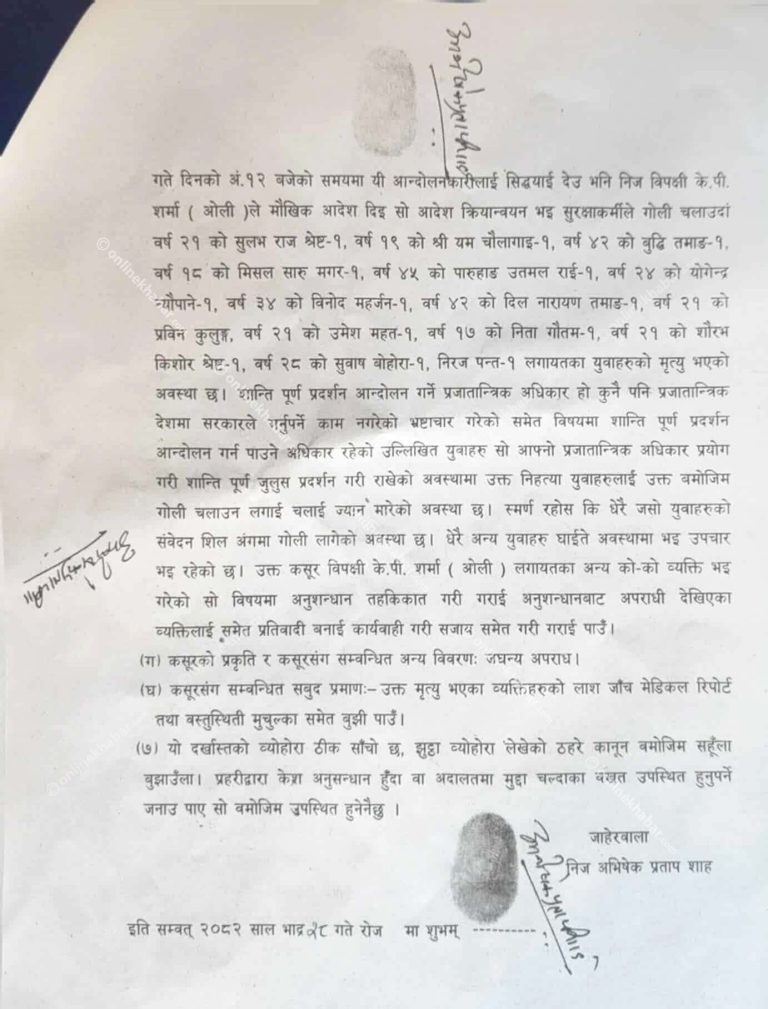 गते दिनको अं.१२ बजेको समयमा यी आन्दोलनकारीलाई सिद्धयाई देउ भनि निज विपक्षी के.पी.
शर्मा ( ओली )ले मौखिक आदेश दिइ सो आदेश क्रियान्वयन भइ सुरक्षाकर्मीले गोली चलाउदां
वर्ष २१ को सुलभ राज श्रेष्ट-१, वर्ष १९ को श्री यम चौलागाइ-१, वर्ष ४२ को बुद्धि तमाङ-१,
वर्ष १८ को मिसल सारु मगर-१, वर्ष ४५ को पारुहाङ उतमल राई-१, वर्ष २४ को योगेन्द्र
न्यौपाने-१, वर्ष ३४ को विनोद महर्जन-१, वर्ष ४२ को दिल नारायण तमाङ-१, वर्ष २१ को
प्रविन कुलुङ्ग, वर्ष २१ को उमेश महत-१, वर्ष १७ को निता गौतम-१, वर्ष २१ को शौरभ
किशोर श्रेष्ट-१, वर्ष २८ को सुवाष बोहोरा-१, निरज पन्त-१ लगायतका युवाहरुको मृत्यु भएको
अवस्था छ। शान्ति पूर्ण प्रदर्शन आन्दोलन गर्ने प्रजातान्त्रिक अधिकार हो कुनै पनि प्रजातान्त्रिक
देशमा सरकारले गर्नुपर्ने काम नगरेको भ्रष्टाचार गरेको समेत विषयमा शान्ति पूर्ण प्रदर्शन
आन्दोलन गर्न पाउने अधिकार रहेको उल्लिखित युवाहरु सो आफ्नो प्रजातान्त्रिक अधिकार प्रयोग
गरी शान्ति पूर्ण जुलुस प्रदर्शन गरी राखेको अवस्थामा उक्त निहत्या युवाहरुलाई उक्त बमोजिम
गोली चलाउन लगाई चलाई ज्यान मारेको अवस्था छ। स्मर्ण रहोस कि धेरै जसो युवाहरुको
संवेदन शिल अंगमा गोली लागेको अवस्था छ। धेरै अन्य युवाहरु घाईते अवस्थामा भइ उपचार
भइ रहेको छ। उक्त कसूर विपक्षी के.पी. शर्मा ( ओली ) लगायतका अन्य को-को व्यक्ति भइ
गरेको सो विषयमा अनुशन्धान तहकिकात गरी गराई अनुशन्धानबाट अपराधी देखिएका
व्यक्तिलाई समेत प्रतिवादी बनाई कार्यवाही गरी सजाय समेत गरी गराई पाउँ।
(ग) कसूरको प्रकृति र कसूरसंग सम्वन्धित अन्य विवरणः जघन्य अपराध।
(घ) कसूरसंग सम्वन्धित सबुद प्रमाणः– उक्त मृत्यु भएका व्यक्तिहरुको लाश जाँच मेडिकल रिपोर्ट
तथा वस्तुस्थिती मुचुल्का समेत बुझी पाउँ।
(७) यो दर्खास्तको व्योहोरा ठीक साँचो छ, झुट्ठा व्योहोरा लेखेको ठहरे कानून बमोजिम सहूँला
बुझाउँला। प्रहरीद्वारा केश्रा अनुसन्धान हुँदा वा अदालतमा मुद्दा चल्दाका बखत उपस्थित हुनुपर्ने
जनाउ पाए सो बमोजिम उपस्थित हुनेनैछु ।
जाहेरवाला
निज अभिषेक प्रताप शाह
इति सम्वत् २०८२ साल भाद्र २८ गते रोज मा शुभम् ----------
© onlinekhabar.com